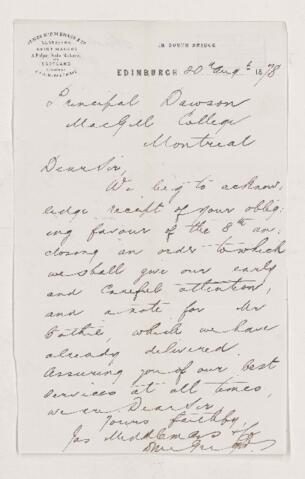 18 SOUTH BRIDGE
EDINBURGH 20th Augt 1878
Principal Dawson
MacGill College
Montreal
Dear Sir,
We beg to acknow
ledge receipt of your oblig
ing favour of the 8th en
closing an order to which
we shall give our early
and careful attention,
and a note for Mr
which we have
already delivered.
Assuring you of our best
services at all times,
we are Dear Sir
Yours faithfy,
Jas Middlemass & Co